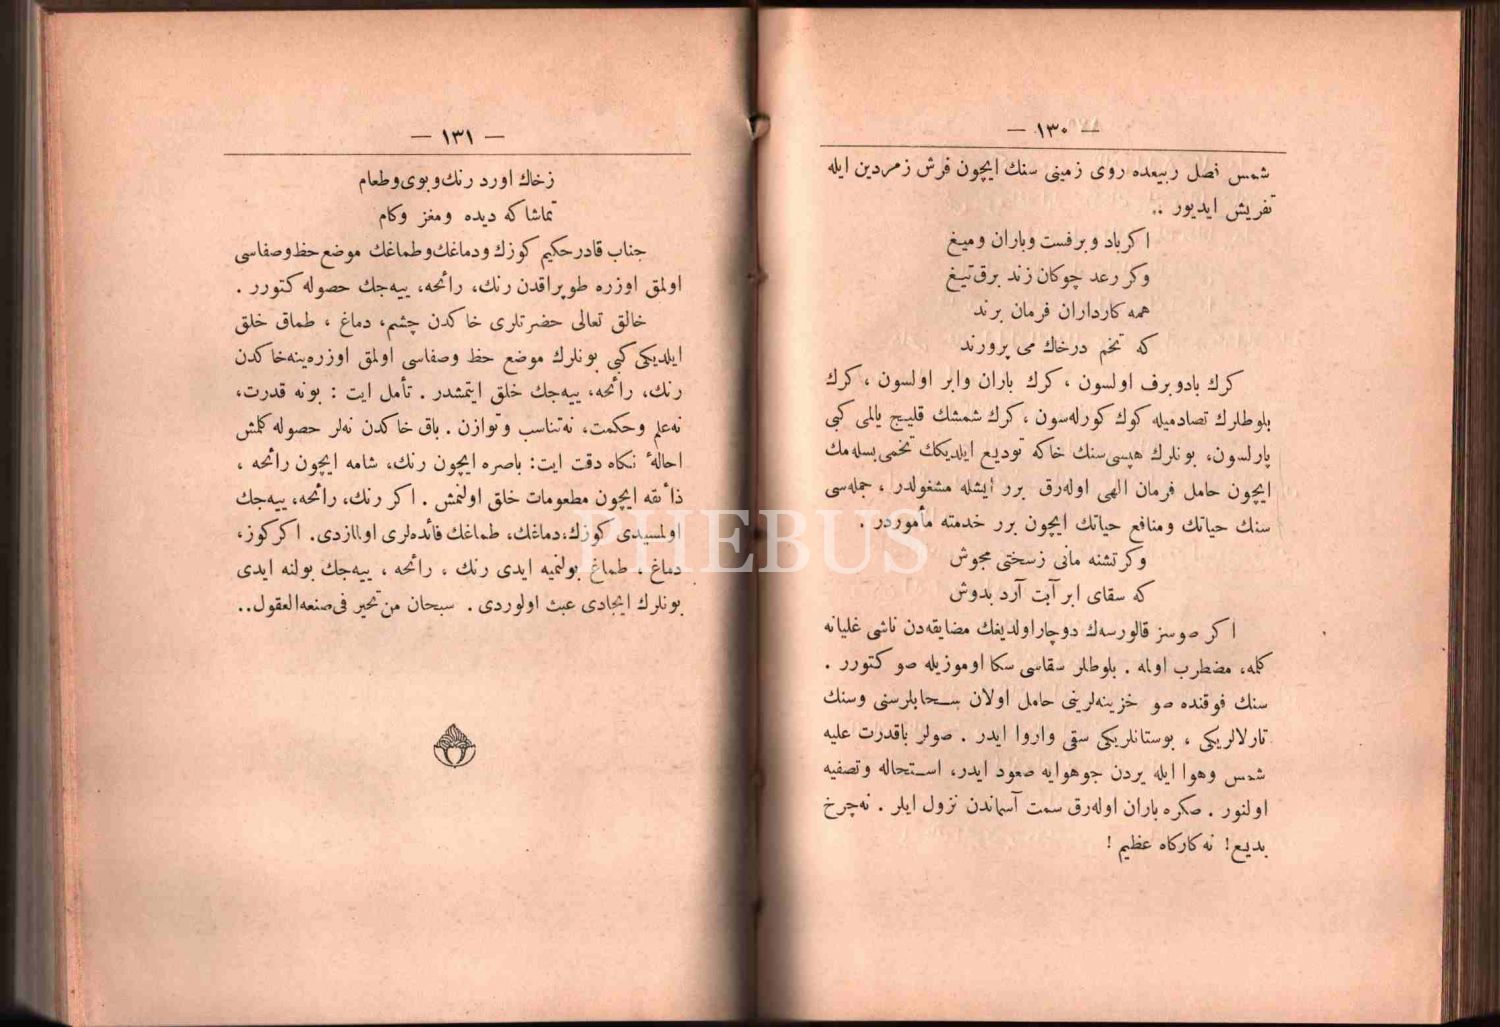 — ١٣٠ —
شمس فصل ربيعده روى زمينى سنك ايچون فرش زمردين ايله
تفريش ايديور ..
اكر باد و برفست وباران وميغ
وكر رعد چوكان زند برق تيغ
همه كارداران فرمان برند
كه تخم درخاك مى پرورند
كرك بادوبرف اولسون ، كرك باران وابر اولسون ، كرك
بلوطلرك تصادميله كوك كورله‌سون ، كرك شمشك قليچ يالمى كبى
پارلسون، بونلرك هپسى سنك خاكه توديع ايلديكك تخمى بسله‌مك
ايچون حامل فرمان الهى اوله‌رق برر ايشله مشغولدر ، جمله‌سى
سنك حياتك ومنافع حياتك ايچون برر خدمته مأموردر .
وكر تشنه مانى زسختى مجوش
كه سقاى ابر آبت آرد بدوش
اكر صوسز قالورسه‌ك دوچار اولديغك مضايقه‌دن ناشى غليانه
كلمه، مضطرب اولمه . بلوطلر سقاسى سكا اوموزيله صو كتورر .
سنك فوقنده صو خزينه‌لرينى حامل اولان سحابلرسنى وسنك
تارلالريكى ، بوستانلريكى سقى واروا ايدر . صولر باقدرت عليه
شمس وهوا ايله يردن جوهوايه صعود ايدر، استحاله وتصفيه
اولنور . صكره باران اوله‌رق سمت آسماندن نزول ايلر . نه‌چرخ
بديع! نه كاركاه عظيم !
— ١٣١ —
زخاك اورد رنك وبوى وطعام
تماشاكه ديده ومغز وكام
جناب قادر حكيم كوزك ودماغك وطماغك موضع حظ وصفاسى
اولمق اوزره طوپراقدن رنك، رائحه، ييه‌جك حصوله كتورر .
خالق تعالى حضرتلرى خاكدن چشم، دماغ ، طماق خلق
ايلديكى كبى بونلرك موضع حظ وصفاسى اولمق اوزره‌ينه خاكدن
رنك، رائحه، ييه‌جك خلق ايتمشدر . تأمل ايت : بونه قدرت،
نه‌علم وحكمت، نه‌تناسب وتوازن . باق خاكدن نه‌لر حصوله كلمش
احاله ٔ نكاه دقت ايت: باصره ايچون رنك، شامه ايچون رائحه ،
ذائقه ايچون مطعومات خلق اولنمش . اكر رنك، رائحه، ييه‌جك
اولمسيدى كوزك، دماغك، طماغك فائده‌لرى اولمازدى. اكر كوز،
دماغ ، طماغ بولنميه ايدى رنك ، رائحه ، ييه‌جك بولنه ايدى
بونلرك ايجادى عبث اولوردى . سبحان من تحير فى صنعه العقول..
PHEBUS